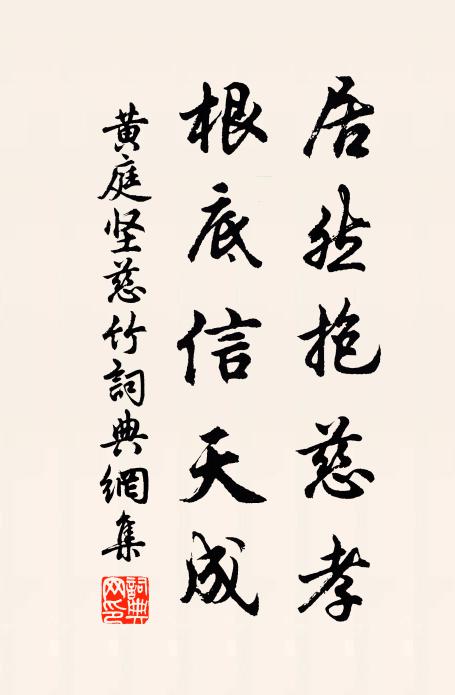 居然抱慈孝
根底信天成
黄庭坚慈竹詞典網集
詞典网印